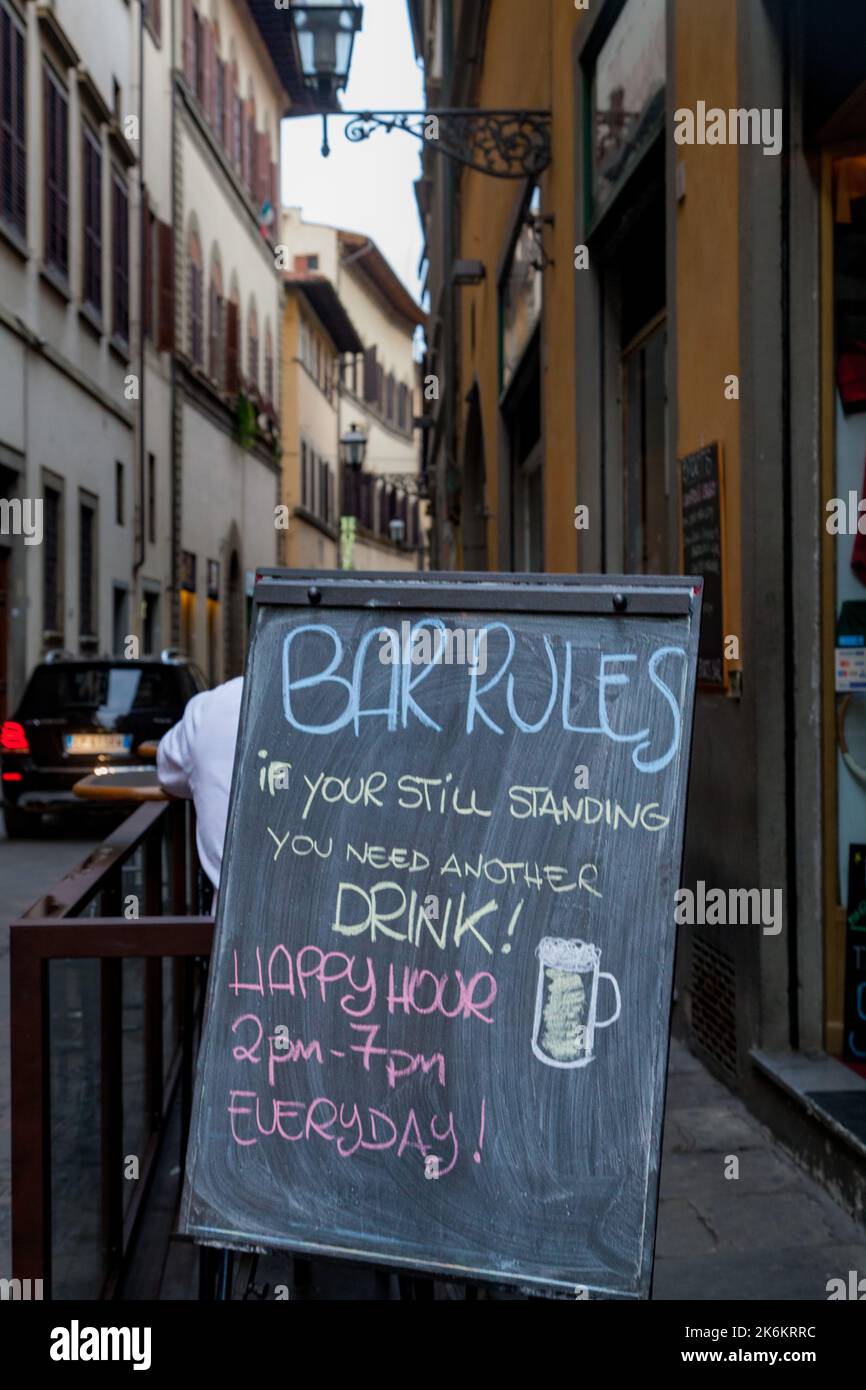 BAR RULES
iF YOUR STiLL STANDING
YOU NEED ANOTHER
DRINK!
HAPPY HOUR
2pm-7pm
EVERYDAY!
alamy
Image ID: 2K6KRRC
www.alamy.com